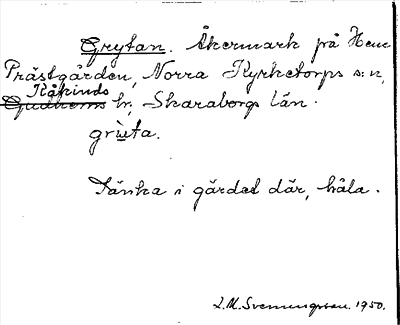 Grytan. Åkermark på Hene
Prästgården, Norra Kyrketorps s:n,
Kåkinds
Gudhems hr, Skaraborgs län.
griuta.
Sänka i gärdet där, håla.
L.M. Svenungsson. 1950.